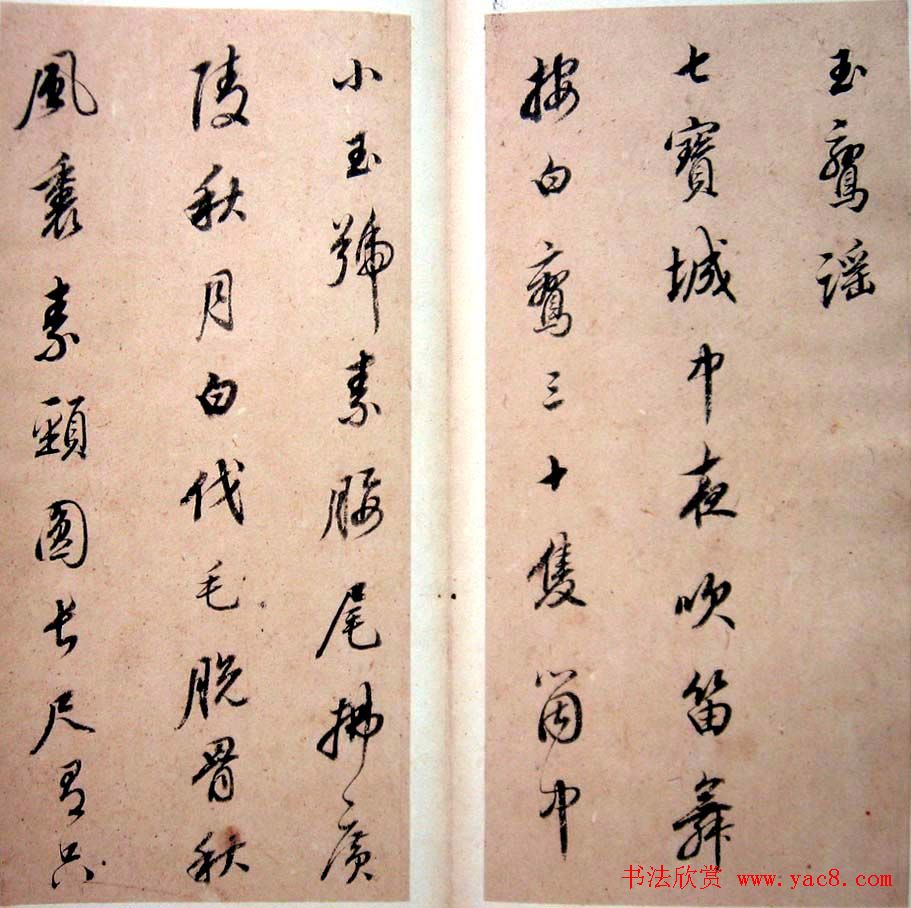 玉鸞謡
七寶城中夜吹笛舞
按白鸞三十隻箇中
小玉號素腰尾拂廣
陵秋月白伐毛脱骨秋
風裏素頸圓長尺有只
书法欣赏 www.yac8.com